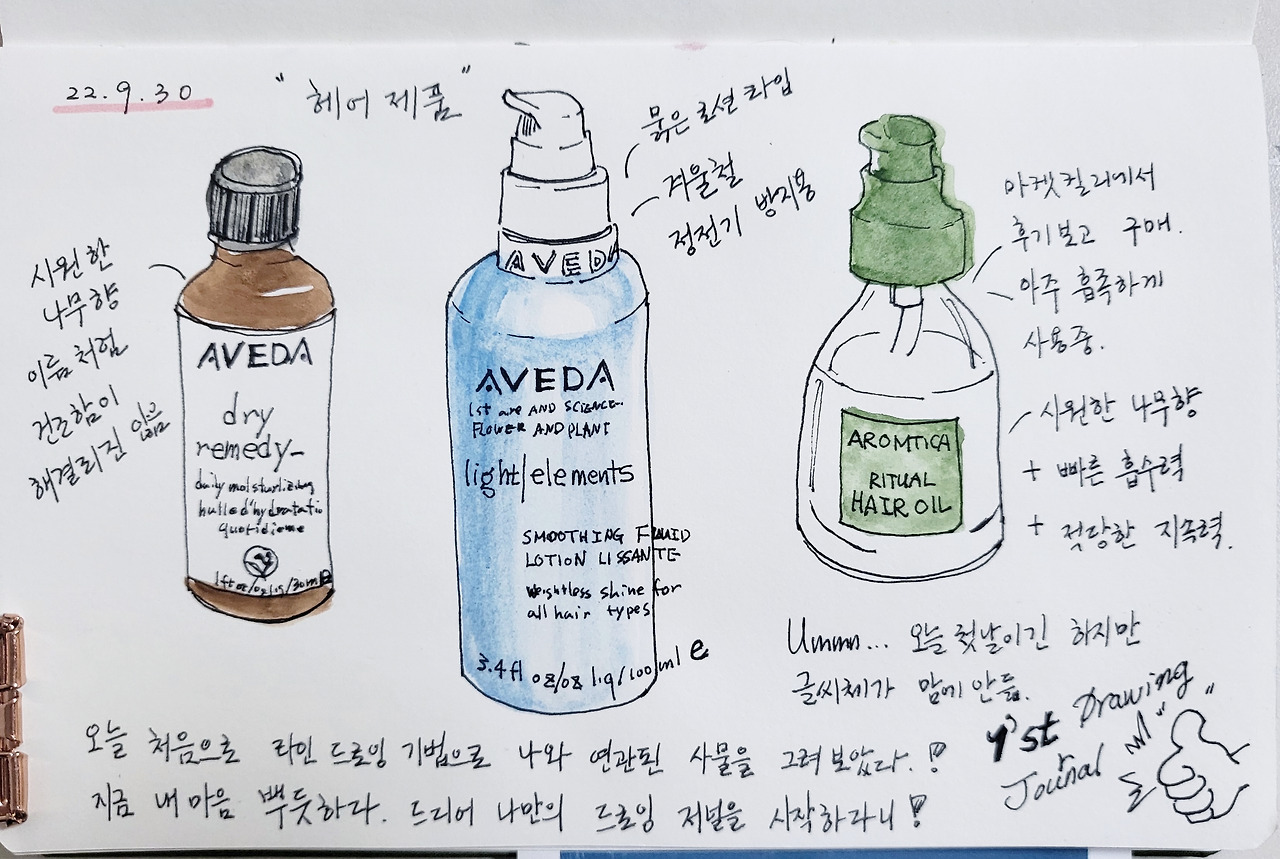 22.9.30
" 헤어 제품 "
시원한
나무향
이름처럼
건조함이
해결되진 않음
AVEDA
dry
remedy-
daily moisturizing
quotidienne
묽은 로션 타입
겨울철
정전기 방지용
AVEDA
AVEDA
1st are AND SCIENCE-
FLOWER AND PLANT
light|elements
SMOOTHING FLUID
LOTION LISSANTE
Weightless shine for
all hair types
3.4 fl oz/oz liq/100 ml e
마켓컬리에서
후기보고 구매.
아주 흡족하게
사용중.
시원한 나무향
+ 빠른 흡수력
+ 적당한 지속력.
AROMTICA
RITUAL
HAIR OIL
Ummm... 오늘 첫날이긴 하지만
글씨체가 맘에 안듦.
오늘 처음으로 라인 드로잉 기법으로 나와 연관된 사물을 그려 보았다.!
지금 내 마음 뿌듯하다. 드디어 나만의 드로잉 저널을 시작하다니!
1st Drawing
Journal